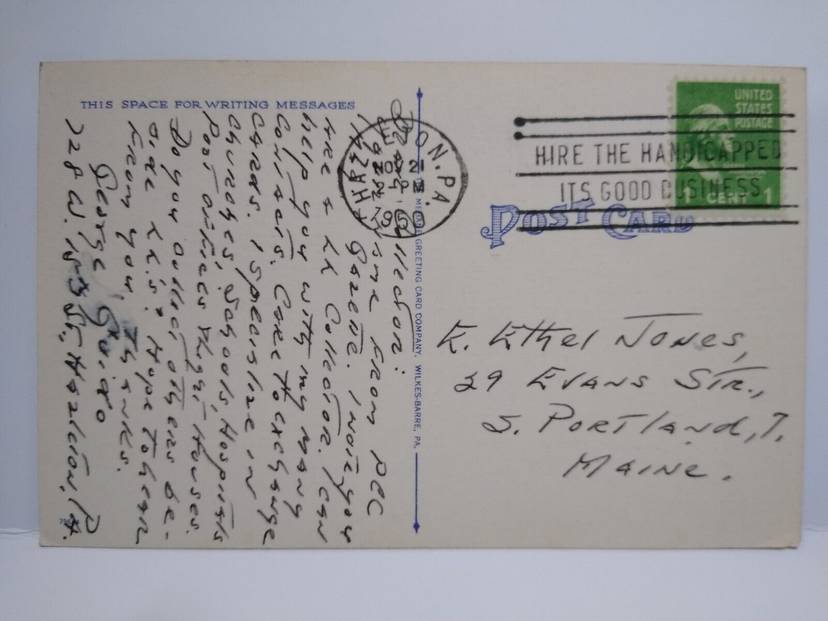 THIS SPACE FOR WRITING MESSAGES
Dear Collector:
name from PCC
Gazette. I note you
are a LL Collector. I can
help you with my many
contacts. Care to exchange
cards. I specialize in
Churches, Schools, Hospitals
Post offices & Light Houses.
Do you collect others be-
side LL's? Hope to hear
from you. Thanks.
George Guido
728 W. 15th St., Hazleton, Pa.
GREETING CARD COMPANY, WILKES-BARRE, PA.
HAZLETON, PA.
21
HIRE THE HANDICAPPED
ITS GOOD BUSINESS
UNITED
STATES
POSTAGE
CENT 1
POST CARD
E. Ethel Jones,
29 Evans Str.,
S. Portland, 7,
Maine.